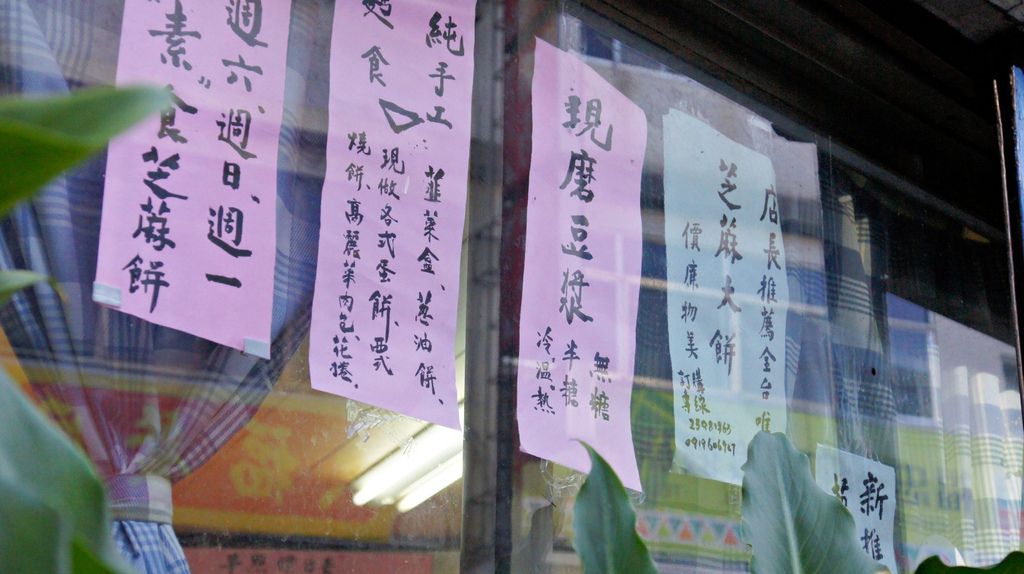 週六、週日、週一
"素"食芝麻餅
純手工：韮菜盒、蔥油餅、
食 現做各式蛋餅、西式
燒餅、高麗菜肉包、花捲、
現磨豆漿
無糖
半糖
冷溫熱
店長推薦全台唯
芝麻大餅
價廉物美
專線
25981963
新推